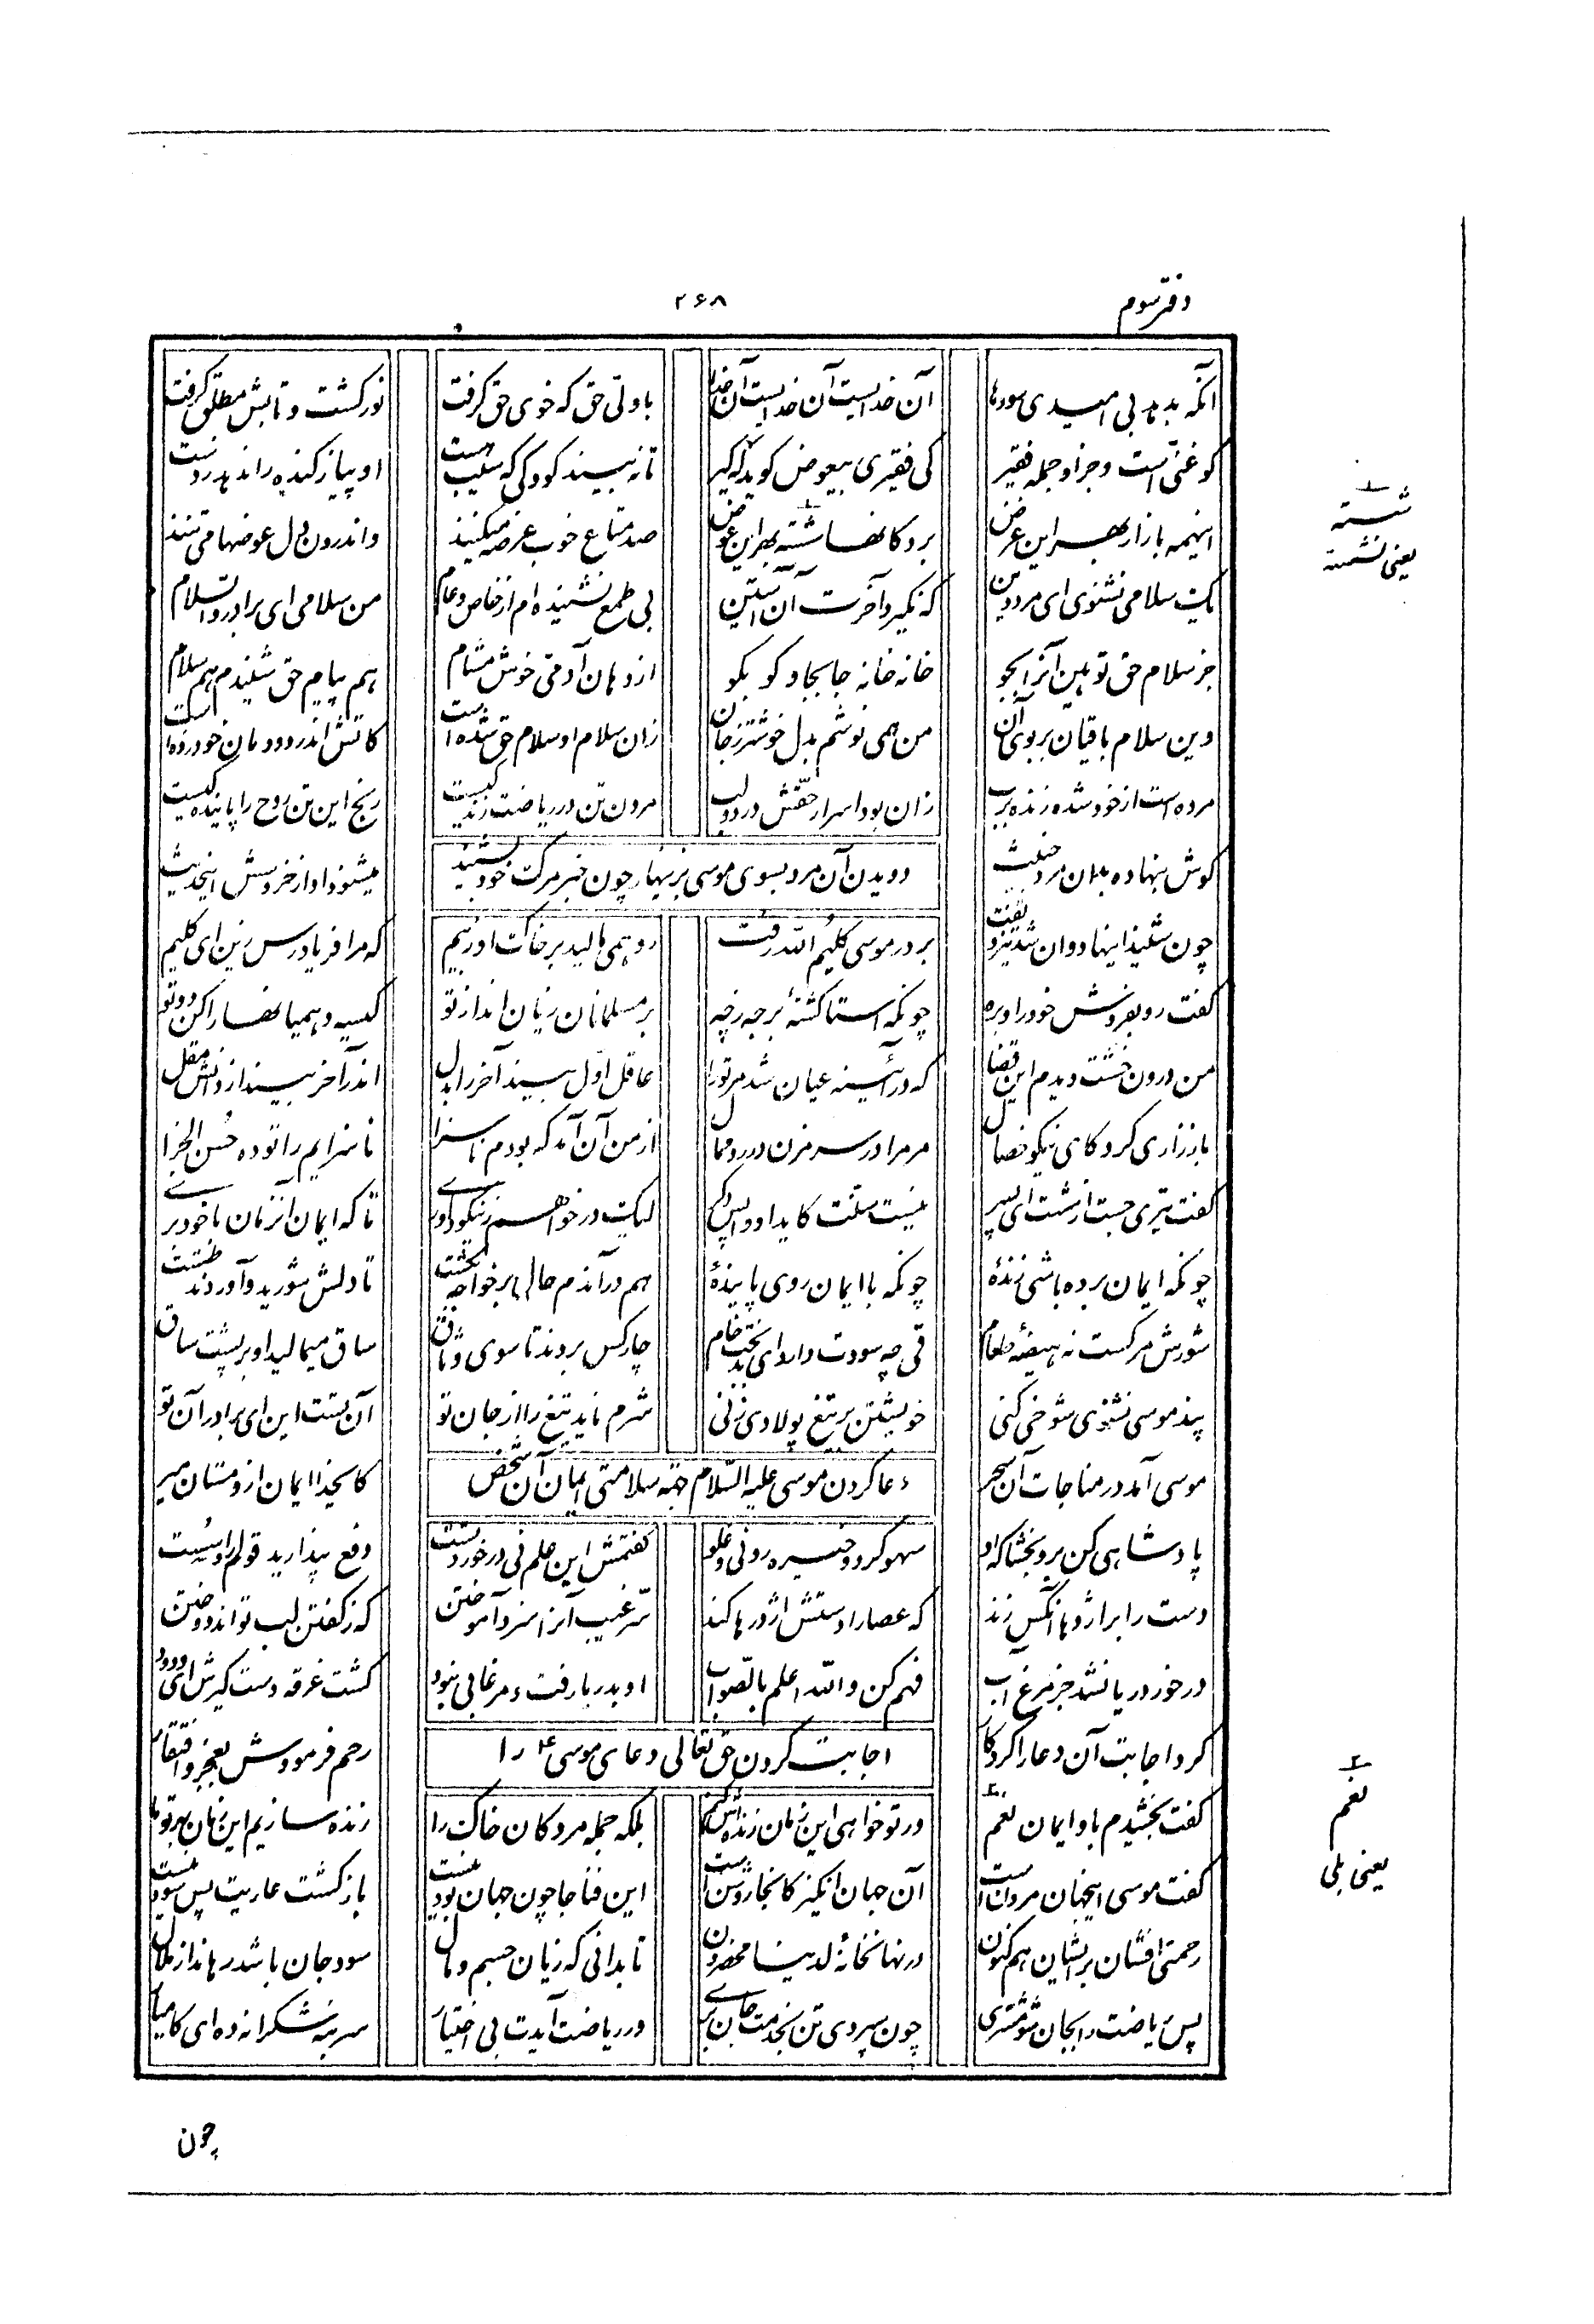 دفتر سوم
۲۶۸
آنکه بدهد بی امیدی سودها    آن خدایست آن خدایست آن خدا    یا ولیّ حق که خوی حق گرفت    نور گشت و تابش مطلق گرفت
کو غنیّ است و جز او جمله فقیر    کی فقیری بیعوض گوید که گیر    تا نه بیند کودکی که سیب هست    او پیاز گنده را ندهد ز دست
اینهمه بازار بهر این غرض    بر دکانها شسته بهر این عوض    صد متاع خوب عرضه میکنند    و اندرون دل عوضها می تنند
یک سلامی نشنوی ای مرد دین    که نگیرد آخرت آن آستین    بی طمع نشنیده ام از خاص و عام    من سلامی ای برادر والسلام
جز سلام حق تو هین آنرا بجو    خانه خانه جا بجا و کو بکو    از دهان آدمی خوش مشام    هم پیام حق شنیدم هم سلام
وین سلام باقیان بر بوی آن    من همی نوشم بدل خوشتر ز جان    زان سلام او سلام حق شده است    کاتش اندر دودمان خود زده است
مرده است از خود شده زنده برب    زان بود اسرار حقّش در دو لب    مردن تن در ریاضت زندگیست    رنج این تن روح را پایندگیست
گوش بنهاده بدان مرد خبیث    دویدن آن مرد بسوی موسی بزینهار چون خبر مرگ خود بشنید    میشنود او از خروسش اینحدیث
چون شنید اینها دوان شد تیز و تفت    بر در موسی کلیم الله رفت    رو همی مالید بر خاک او ز بیم    که مرا فریاد رس زین ای کلیم
گفت رو بفروش خود را و بره    چونکه استا گشتهٔ بر جه ز چه    بر مسلمانان زیان انداز تو    کیسه و همیانها را کن دو تو
من درون خشت دیدم این قضا    که در آئینه عیان شد مر تو را    عاقل اوّل بیند آخر را بدل    اندر آخر بیند از دانش مقل
باز زاری کرد کای نیکو خصال    مر مرا در سر مزن در رو ممال    از من آن آمد که بودم نا سزا    ناسزایم را تو ده حُسن الجزا
گفت تیری جست از شست ای پسر    نیست سنّت کاید او واپس دگر    لیک در خواهم ز نیکو داوری    تا که ایمان آنزمان با خود بری
چونکه ایمان برده باشی زندهٔ    چونکه با ایمان روی پایندهٔ    هم در آندم حال بر خواجه بگشت    تا دلش شورید و آوردند طشت
شورش مرگست نه هیضهٔ طعام    قی چه سودت دارد ای بدبخت خام    چار کس بردند تا سوی وثاق    ساق میمالید او بر پشت ساق
پند موسی نشنوی شوخی کنی    خویشتن بر تیغ پولادی زنی    شرم ناید تیغ را از جان تو    آن تست این ای برادر آن تو
موسی آمد در مناجات آن سحر    دعا کردن موسی علیه السّلام جهة سلامتی ایمان آن شخص    کایخدا ایمان ازو مستان مبر
پادشاهی کن برو بخشا که او    سهو کرد و خیره روئی و غلو    گفتمش این علم نی در خورد تست    دفع پندارید قولم را و سُست
دست را بر اژدها آنکس زند    که عصا را دستش اژدرها کند    سرّ غیب آنرا سزد آموختن    که ز گفتن لب تواند دوختن
در خور دریا نشد جز مرغ آب    فهم کن والله اعلم بالصّواب    او بدریا رفت و مرغابی نبود    گشت غرقه دست گیرش ای ودود
کرد اجابت آن دعا را کردگار    اجابت کردن حق تعالی دعای موسی ع را    رحم فرمودش بعجز و افتقار
گفت بخشیدم باو ایمان نعم    ور تو خواهی این زمان زنده اش کنم    بلکه جمله مردگان خاک را    زنده سازیم این زمان بهر تو ما
گفت موسی اینجهان مردنست    آن جهان انگیز کانجا روشنست    این فنا جا چون جهان بود نیست    بازگشت عاریت پس سود نیست
رحمتی افشان برایشان هم کنون    در نهانخانهٔ لدینا محضرون    تا بدانی که زیان جسم و مال    سود جان باشد رهاند از ملال
پس ریاضت را بجان شو مشتری    چون سپردی تن بخدمت جان بری    ور ریاضت آیدت بی اختیار    سر بنه شکرانه ده ای کامیار
۱
شسته
یعنی نشسته
۲
نعم
یعنی بلی
چون